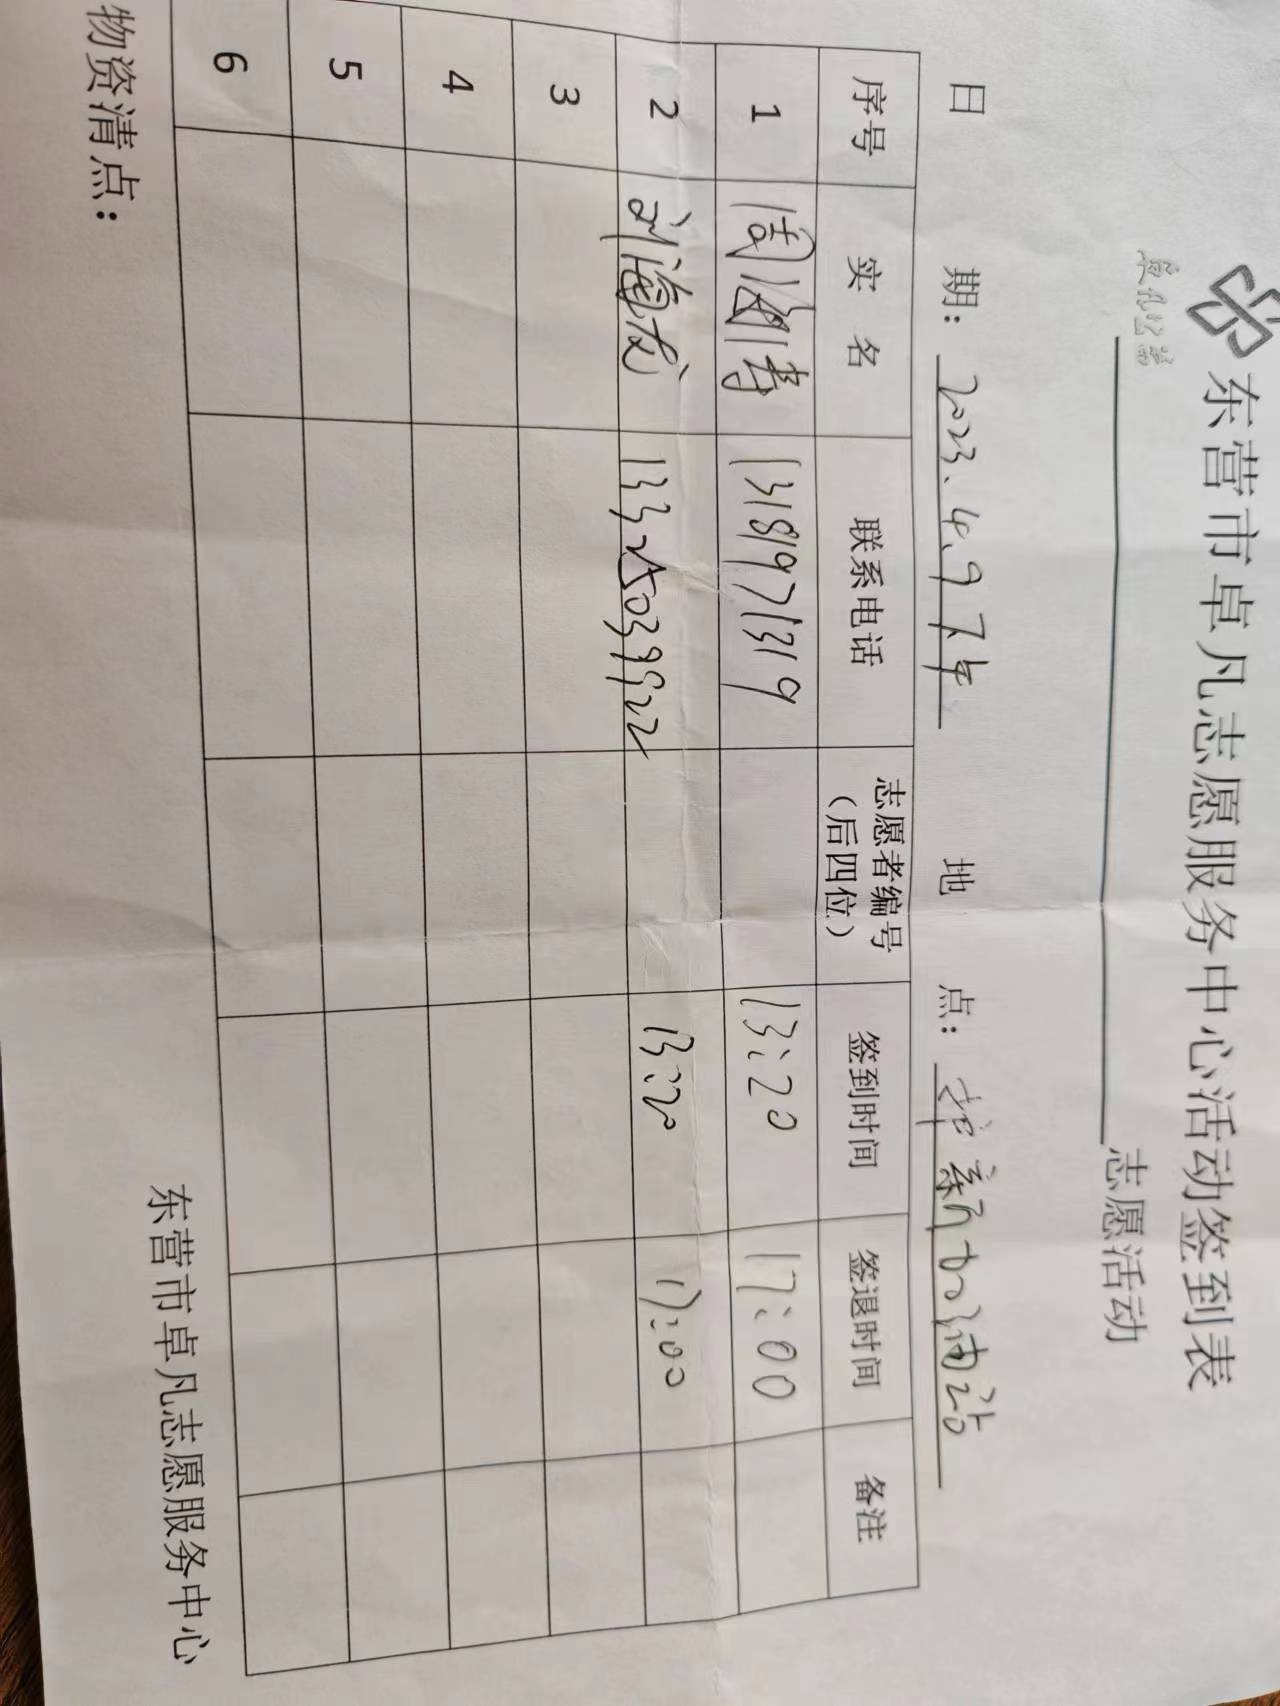 东营市卓凡志愿服务中心活动签到表
志愿活动
日 期：2023.4.9下午 地 点：新加油站
序号 实 名 联系电话 志愿者编号（后四位） 签到时间 签退时间 备注
1 周海涛 13181971319 13:20 17:00
2 刘海龙 13325039922 13:20 17:00
3
4
5
6
物资清点：
东营市卓凡志愿服务中心